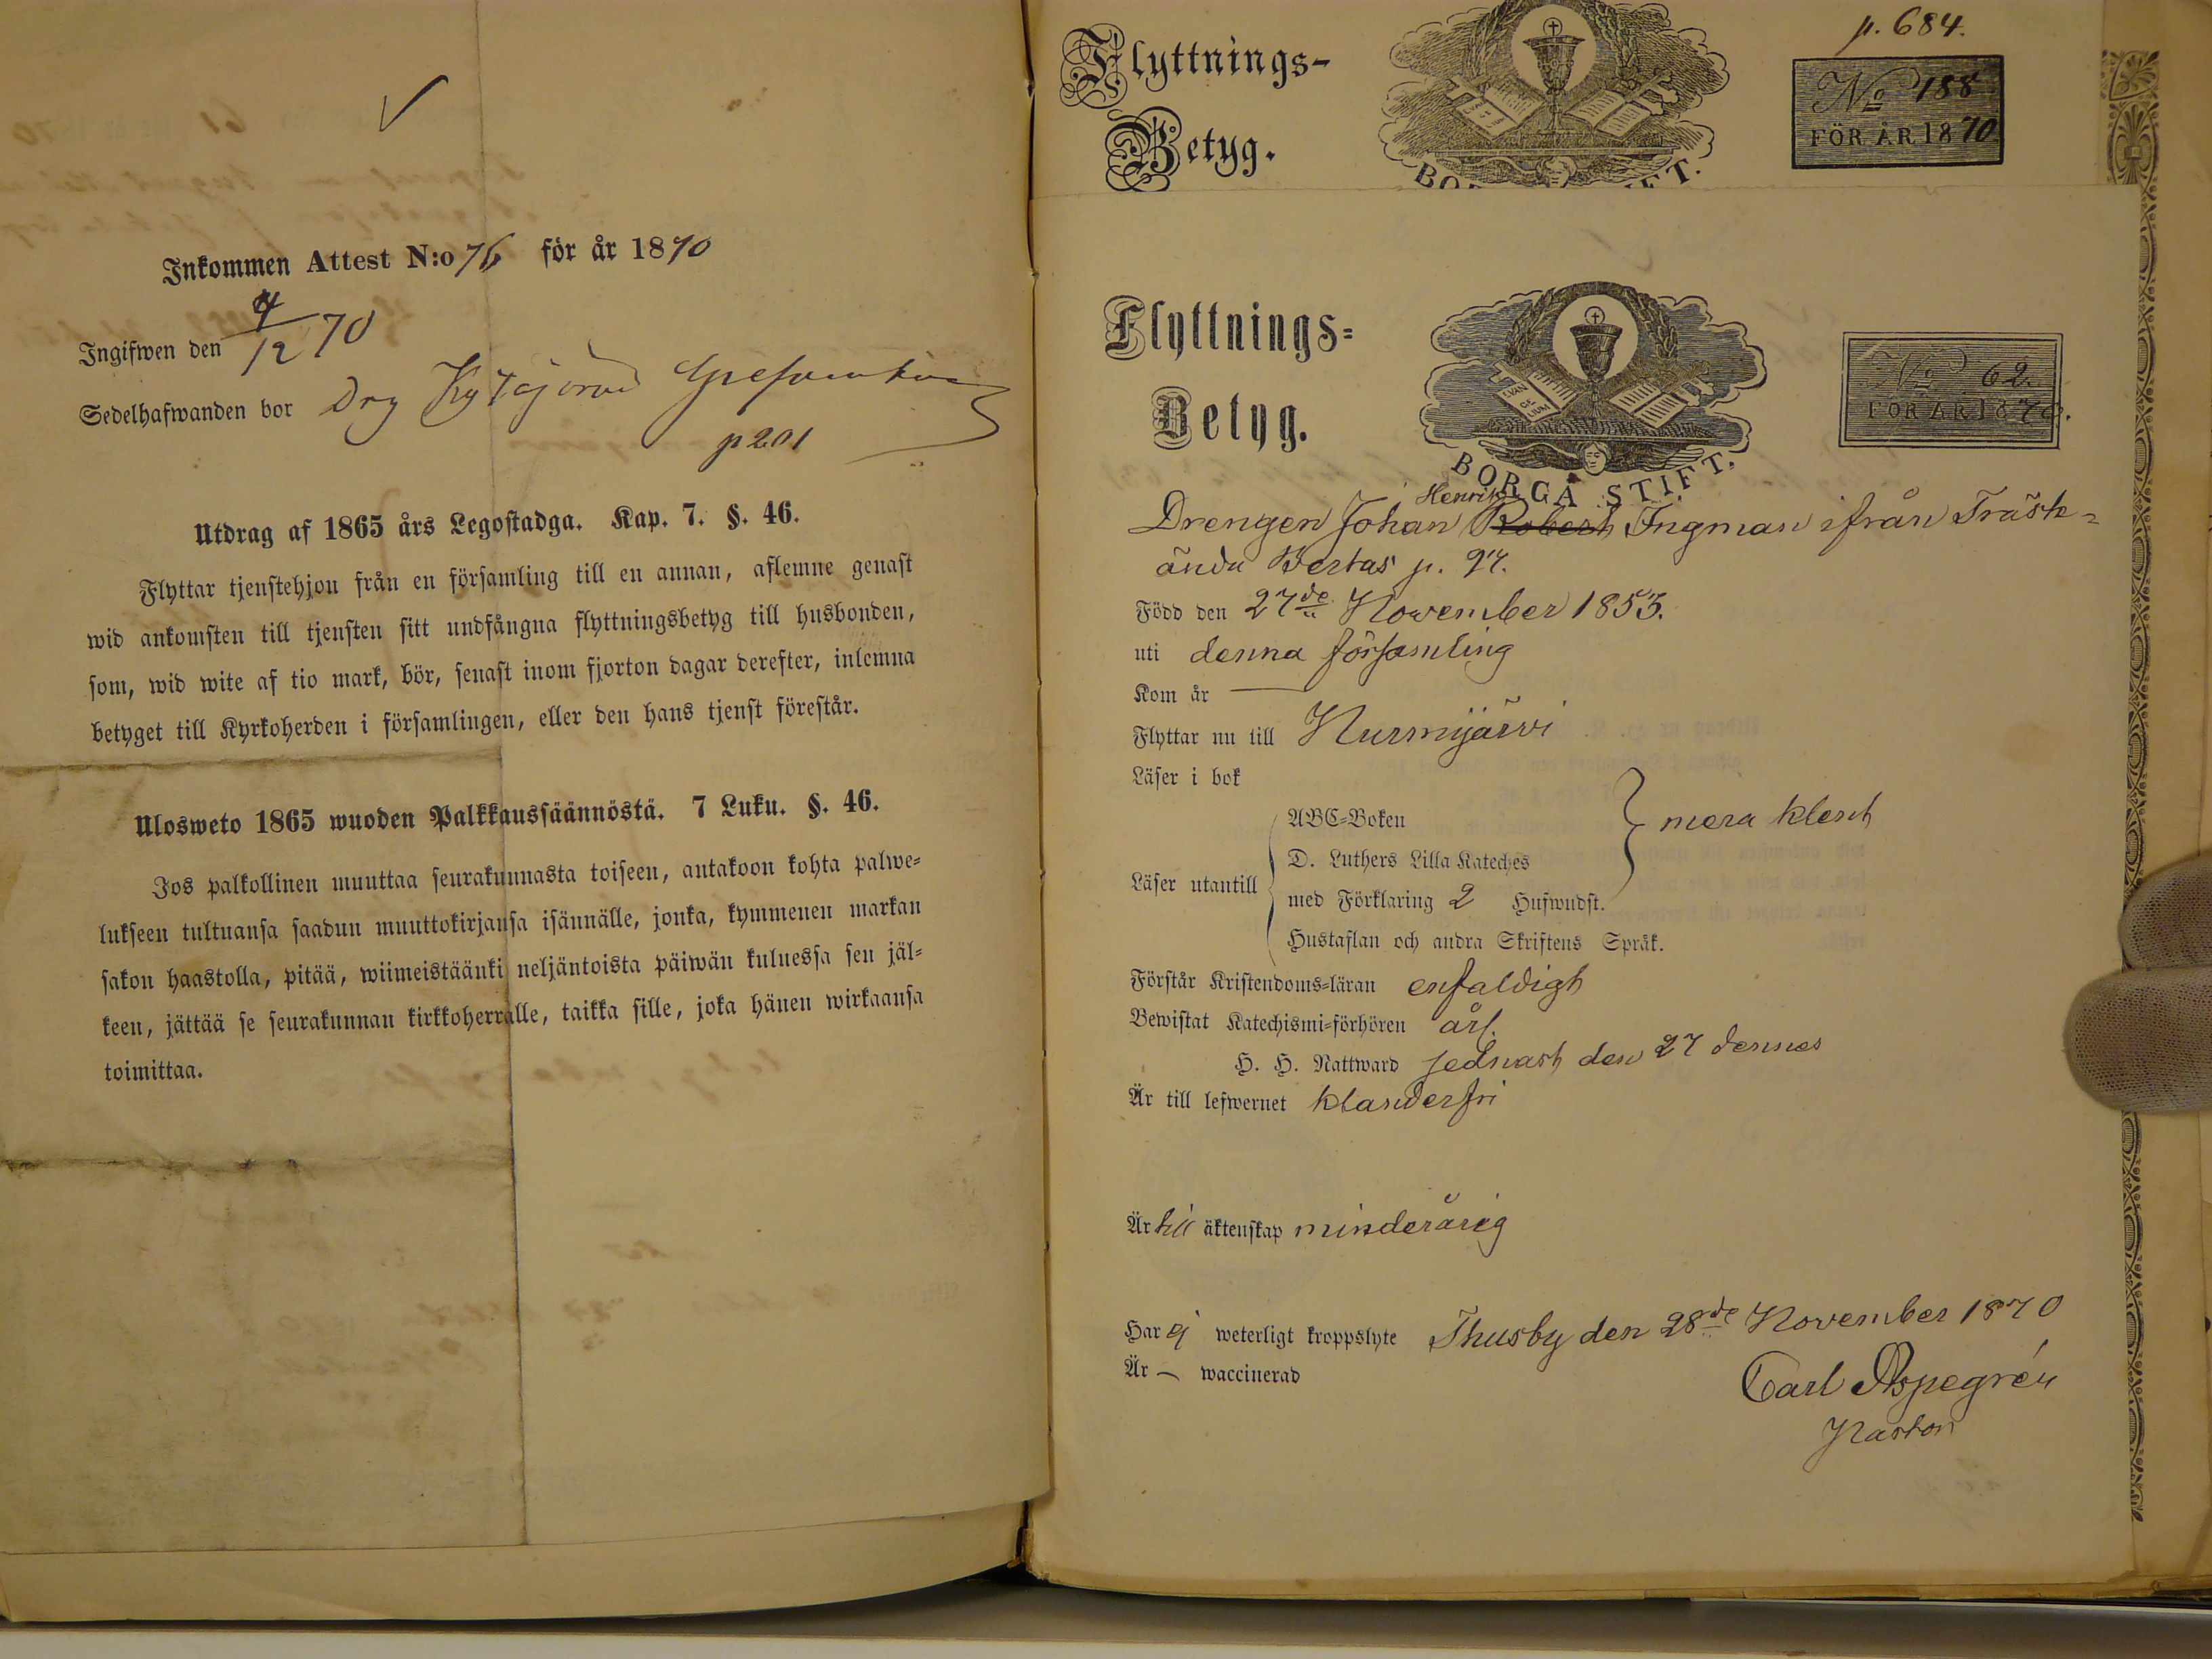 Inkommen Attest N:o 76 för år 1870
Ingifwen den 4/12 70
Sedelhafwanden bor Drg Kytäjorva
p 201
Utdrag af 1865 års Legostadga. Kap. 7. §. 46.
Flyttar tjenstehjon från en församling till en annan, aflemne genast
wid ankomsten till tjensten sitt undfångna flyttningsbetyg till husbonden,
som, wid wite af tio mark, bör, senast inom fjorton dagar derefter, inlemna
betyget till Kyrkoherden i församlingen, eller den hans tjenst förestår.
Ulosweto 1865 wuoden Palkkaussäännöstä. 7 Luku. §. 46.
Jos palkollinen muuttaa seurakunnasta toiseen, antakoon kohta palwe=
lukseen tultuansa saadun muuttokirjansa isännälle, jonka, kymmenen markan
sakon haastolla, pitää, wiimeistäänki neljäntoista päiwän kuluessa sen jäl=
keen, jättää se seurakunnan kirkkoherralle, taikka sille, joka hänen wirkaansa
toimittaa.
p. 684.
Flyttnings-
Betyg.
No 188
FÖR ÅR 1870
Flyttnings=
Betyg.
EVAN
GE
LIUM
BORGÅ STIFT.
No 62.
FÖR ÅR 1870.
Henrik
Drengen Johan Robert Ingman ifrån Träsk=
ända Bertas p. 94.
Född den 27de November 1853.
uti denna församling
Kom år —
Flyttar nu till Nurmijärvi
Läser i bok
ABC=Boken
D. Luthers Lilla Kateches
mera klent
Läser utantill
med Förklaring 2 Hufwudst.
Hustaflan och andra Skriftens Språk.
Förstår Kristendoms=läran enfaldigt
Bewistat Katechismi=förhören årl.
H. H. Nattward sednast den 27 dennes
Är till lefwernet klanderfri
Är till äktenskap minderårig
Har ej weterligt kroppslyte Thusby den 28de November 1870
Är — waccinerad
Carl Aspegrén
Pastor